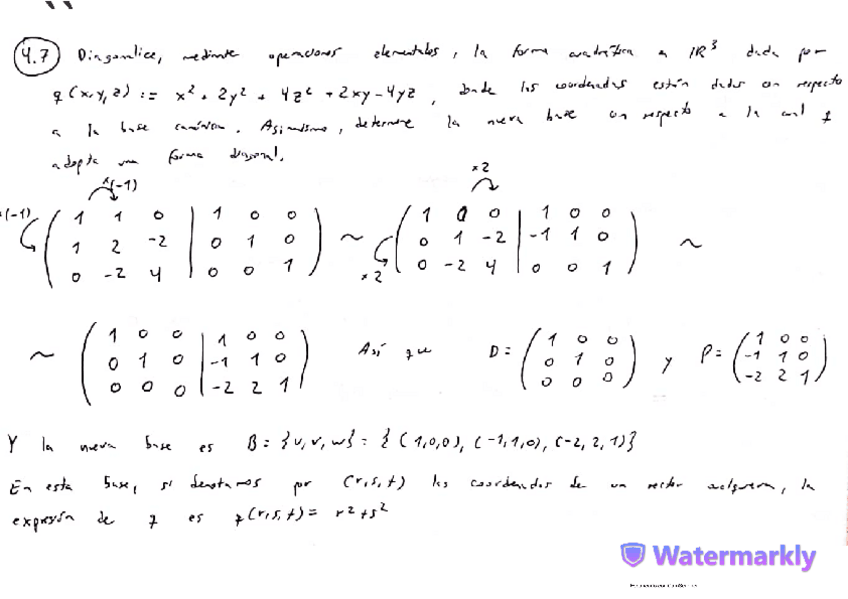 4.7 Diagonalice, mediante operaciones elementales, la forma cuadrática en IR³ dada por
q(x,y,z) := x² + 2y² + 4z² + 2xy - 4yz, donde las coordenadas están dadas con respecto
a la base canónica. Asimismo, determine la nueva base con respecto a la cual q
adopta una forma diagonal.
x(-1) x2
x(-1) ( 1 1 0 | 1 0 0 ) ( 1 0 0 | 1 0 0 )
( 1 2 -2 | 0 1 0 ) ~ ( 0 1 -2 | -1 1 0 ) ~
( 0 -2 4 | 0 0 1 ) x2 ( 0 -2 4 | 0 0 1 )
( 1 0 0 | 1 0 0 ) ( 1 0 0 ) ( 1 0 0 )
~ ( 0 1 0 | -1 1 0 ) Así que D = ( 0 1 0 ) y P = ( -1 1 0 )
( 0 0 0 | -2 2 1 ) ( 0 0 0 ) ( -2 2 1 )
Y la nueva base es B = {u, v, w} = { (1,0,0), (-1,1,0), (-2,2,1)}
En esta base, si denotamos por (r,s,t) las coordenadas de un vector cualquiera, la
expresión de q es q(r,s,t) = r² + s²
Watermarkly